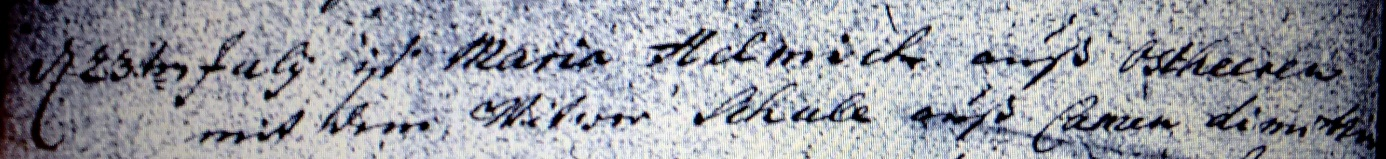 d 23ten July ist Maria Helmich auß Ostheeren
mit dem Witwer Schule auß Camen dimittirt